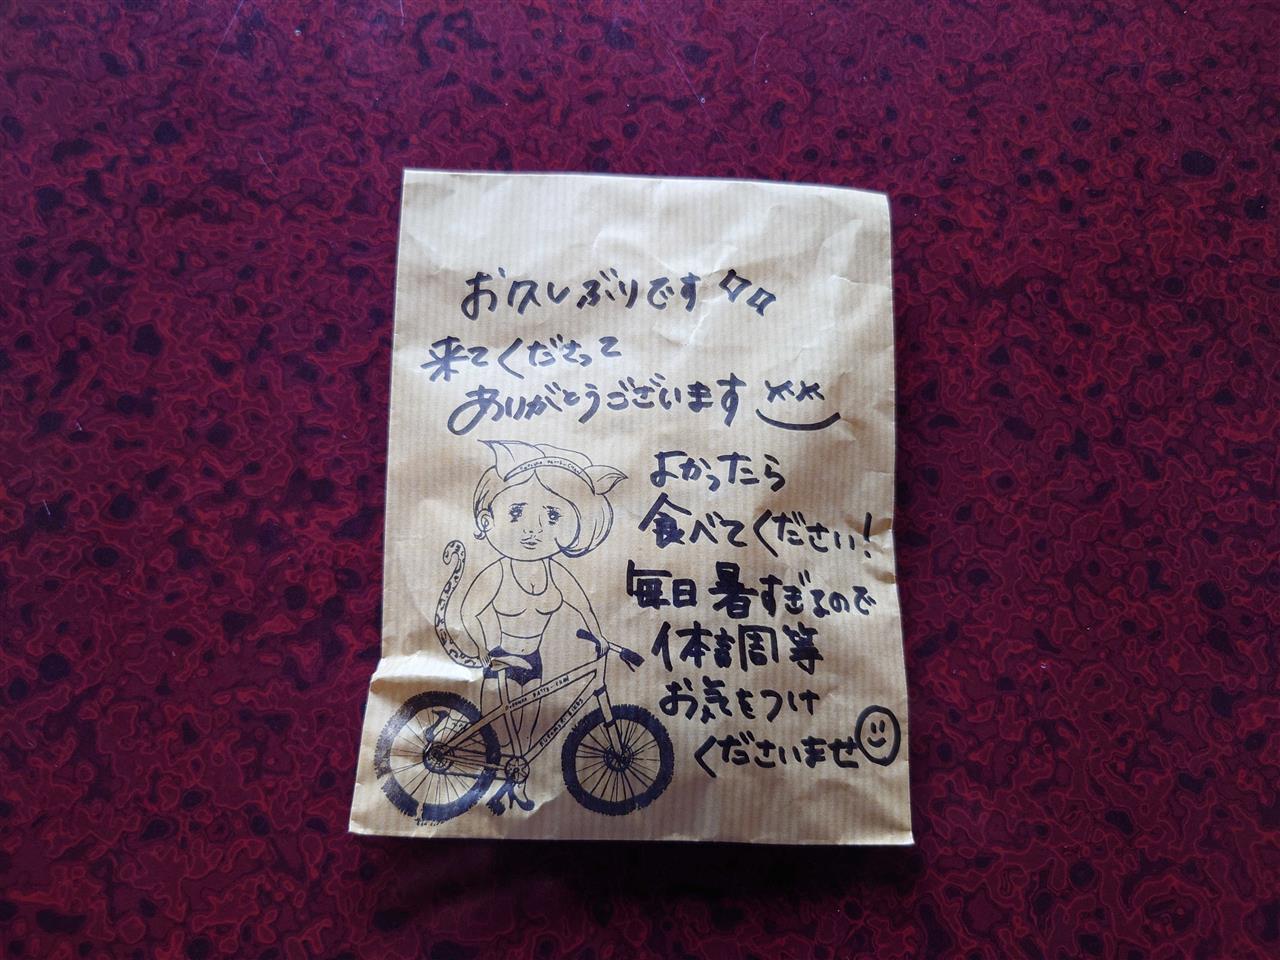 お久しぶりです
来てくださって
ありがとうございます
よかったら
食べてください!
毎日暑すぎるので
体調等
お気をつけ
くださいませ